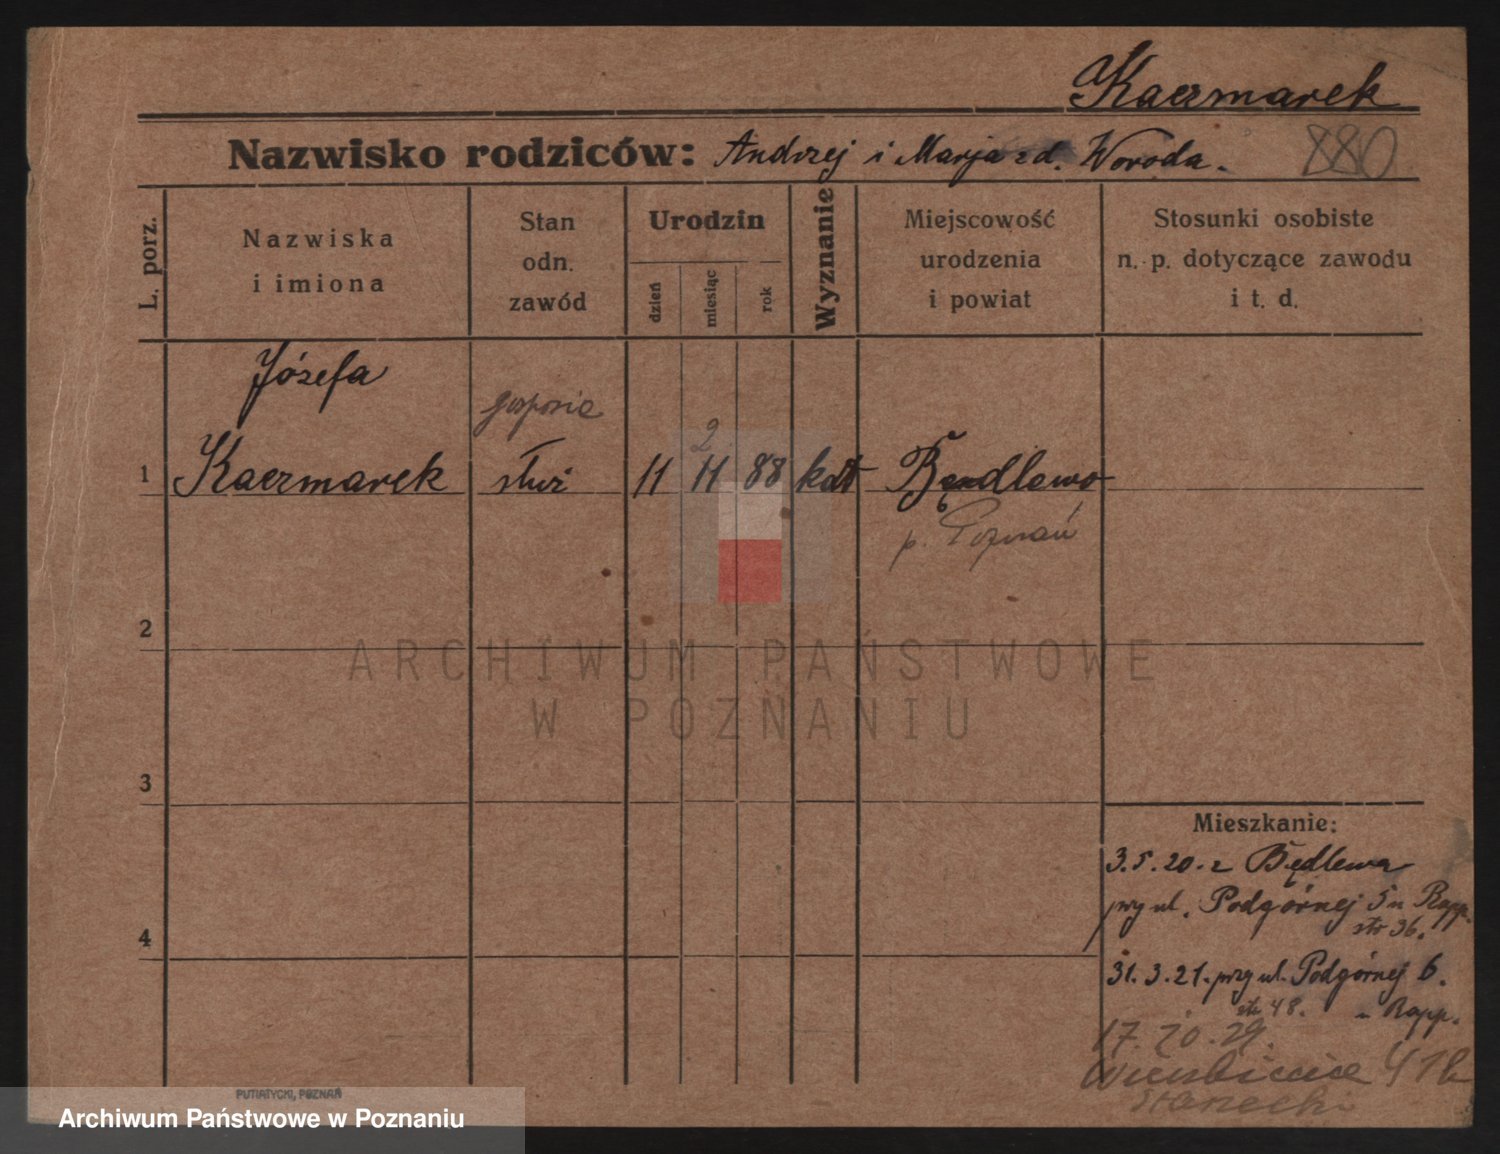 Kaczmarek
Nazwisko rodziców: Andrzej i Marja z d. Woroda.
880
L. porz.
Nazwiska
i imiona
Stan
odn.
zawód
Urodzin
dzień
miesiąc
rok
Wyznanie
Miejscowość
urodzenia
i powiat
Stosunki osobiste
n. p. dotyczące zawodu
i t. d.
Józefa
gosposia
2
1 Kaczmarek służ 11 11 88 kat Będlewo
p. Poznań
2
ARCHIWUM PAŃSTWOWE
W POZNANIU
3
Mieszkanie:
3.5.20. z Będlewa
przy ul. Podgórnej 5 u Rapp.
str 36.
4
31.3.21. przy ul. Podgórnej 6.
str 48. u Rapp.
17.10.29.
41b
PUTIATYCKI, POZNAŃ
Archiwum Państwowe w Poznaniu